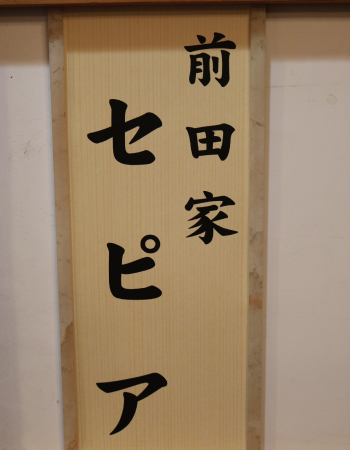 前田家
セピア